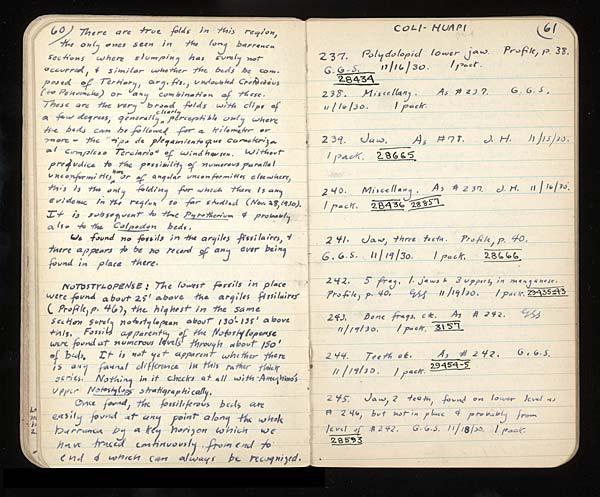 60) There are true folds in this region,
the only ones seen in the long barranca
sections where slumping has surely not
occurred, & similar whether the beds be com-
posed of Tertiary, arg. fis., undoubted Cretacious
(to Pehuenche) or any combination of these.
These are the very broad folds with dips of
a few degrees, generally clearly perceptible only where
the beds can be followed for a kilometer or
more - the "tipo de plegamiento que caracteriza
al complejo Terciario" of Windhausen. Without
prejudice to the possibility of numerous parallel
unconformities, or of angular unconformities elsewhere,
this is the only folding for which there is any
evidence in the region so far studied (Nov. 28, 1930).
It is subsequent to the Pyrotherium & probably
also to the Colpodon beds.
We found no fossils in the argiles fissilaires, &
there appears to be no record of any ever being
found in place there.
NOTOSTYLOPENSE: The lowest fossils in place
were found about 25' above the argiles fissilaires
(Profile, p. 46), the highest in the same
section surely notostylopean about 130'-135' above
this. Fossils apparently of the Notostylopense
were found at numerous levels through about 150'
of beds. It is not yet apparent whether there
is any faunal difference in this rather thick
series. Nothing in it checks at all with Ameghino's
upper Notostylops stratigraphically.
Once found, the fossiliferous beds are
easily found at any point along the whole
barranca by a key horizon which we
have traced continuously from end to
end & which can always be recognized.
COLI-HUAPI 61
237. Polydolopid lower jaw. Profile, p. 38.
G.G.S. 11/16/30. 1 pack.
28434
238. Miscellany. As #237. G.G.S.
11/16/30. 1 pack.
239. Jaw. As #78. J.H. 11/15/30.
1 pack. 28665
240. Miscellany. As #237. J.H. 11/16/30.
1 pack. 28436 28857
241. Jaw, three teeth. Profile, p. 40.
G.G.S. 11/19/30. 1 pack. 28666
242. 5 frag. l. jaws & 3 uppers, in manganese.
Profile, p. 40. GGS 11/19/30. 1 pack. 29435-43
243. Bone frags. etc. As #242. GGS
11/19/30. 1 pack. 3157
244. Teeth etc. As #242. G.G.S.
11/19/30. 1 pack. 29454-5
245. Jaw, 2 teeth, found on lower level as
#246, but not in place & probably from
level of #242. G.G.S. 11/18/30. 1 pack.
28593